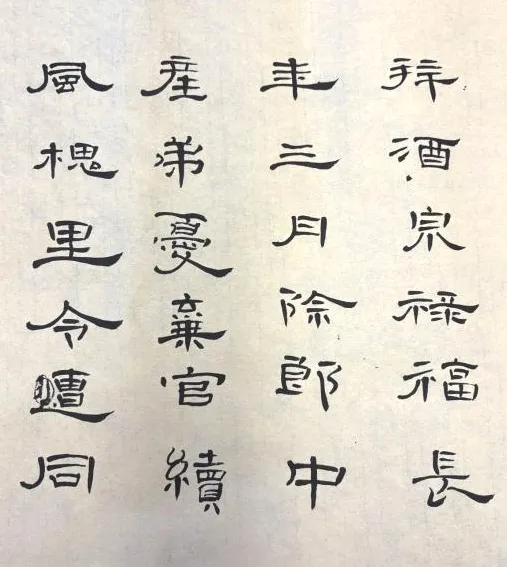 風槐里令遭同
產弟憂棄官續
年三月除郎中
拜酒泉祿福長